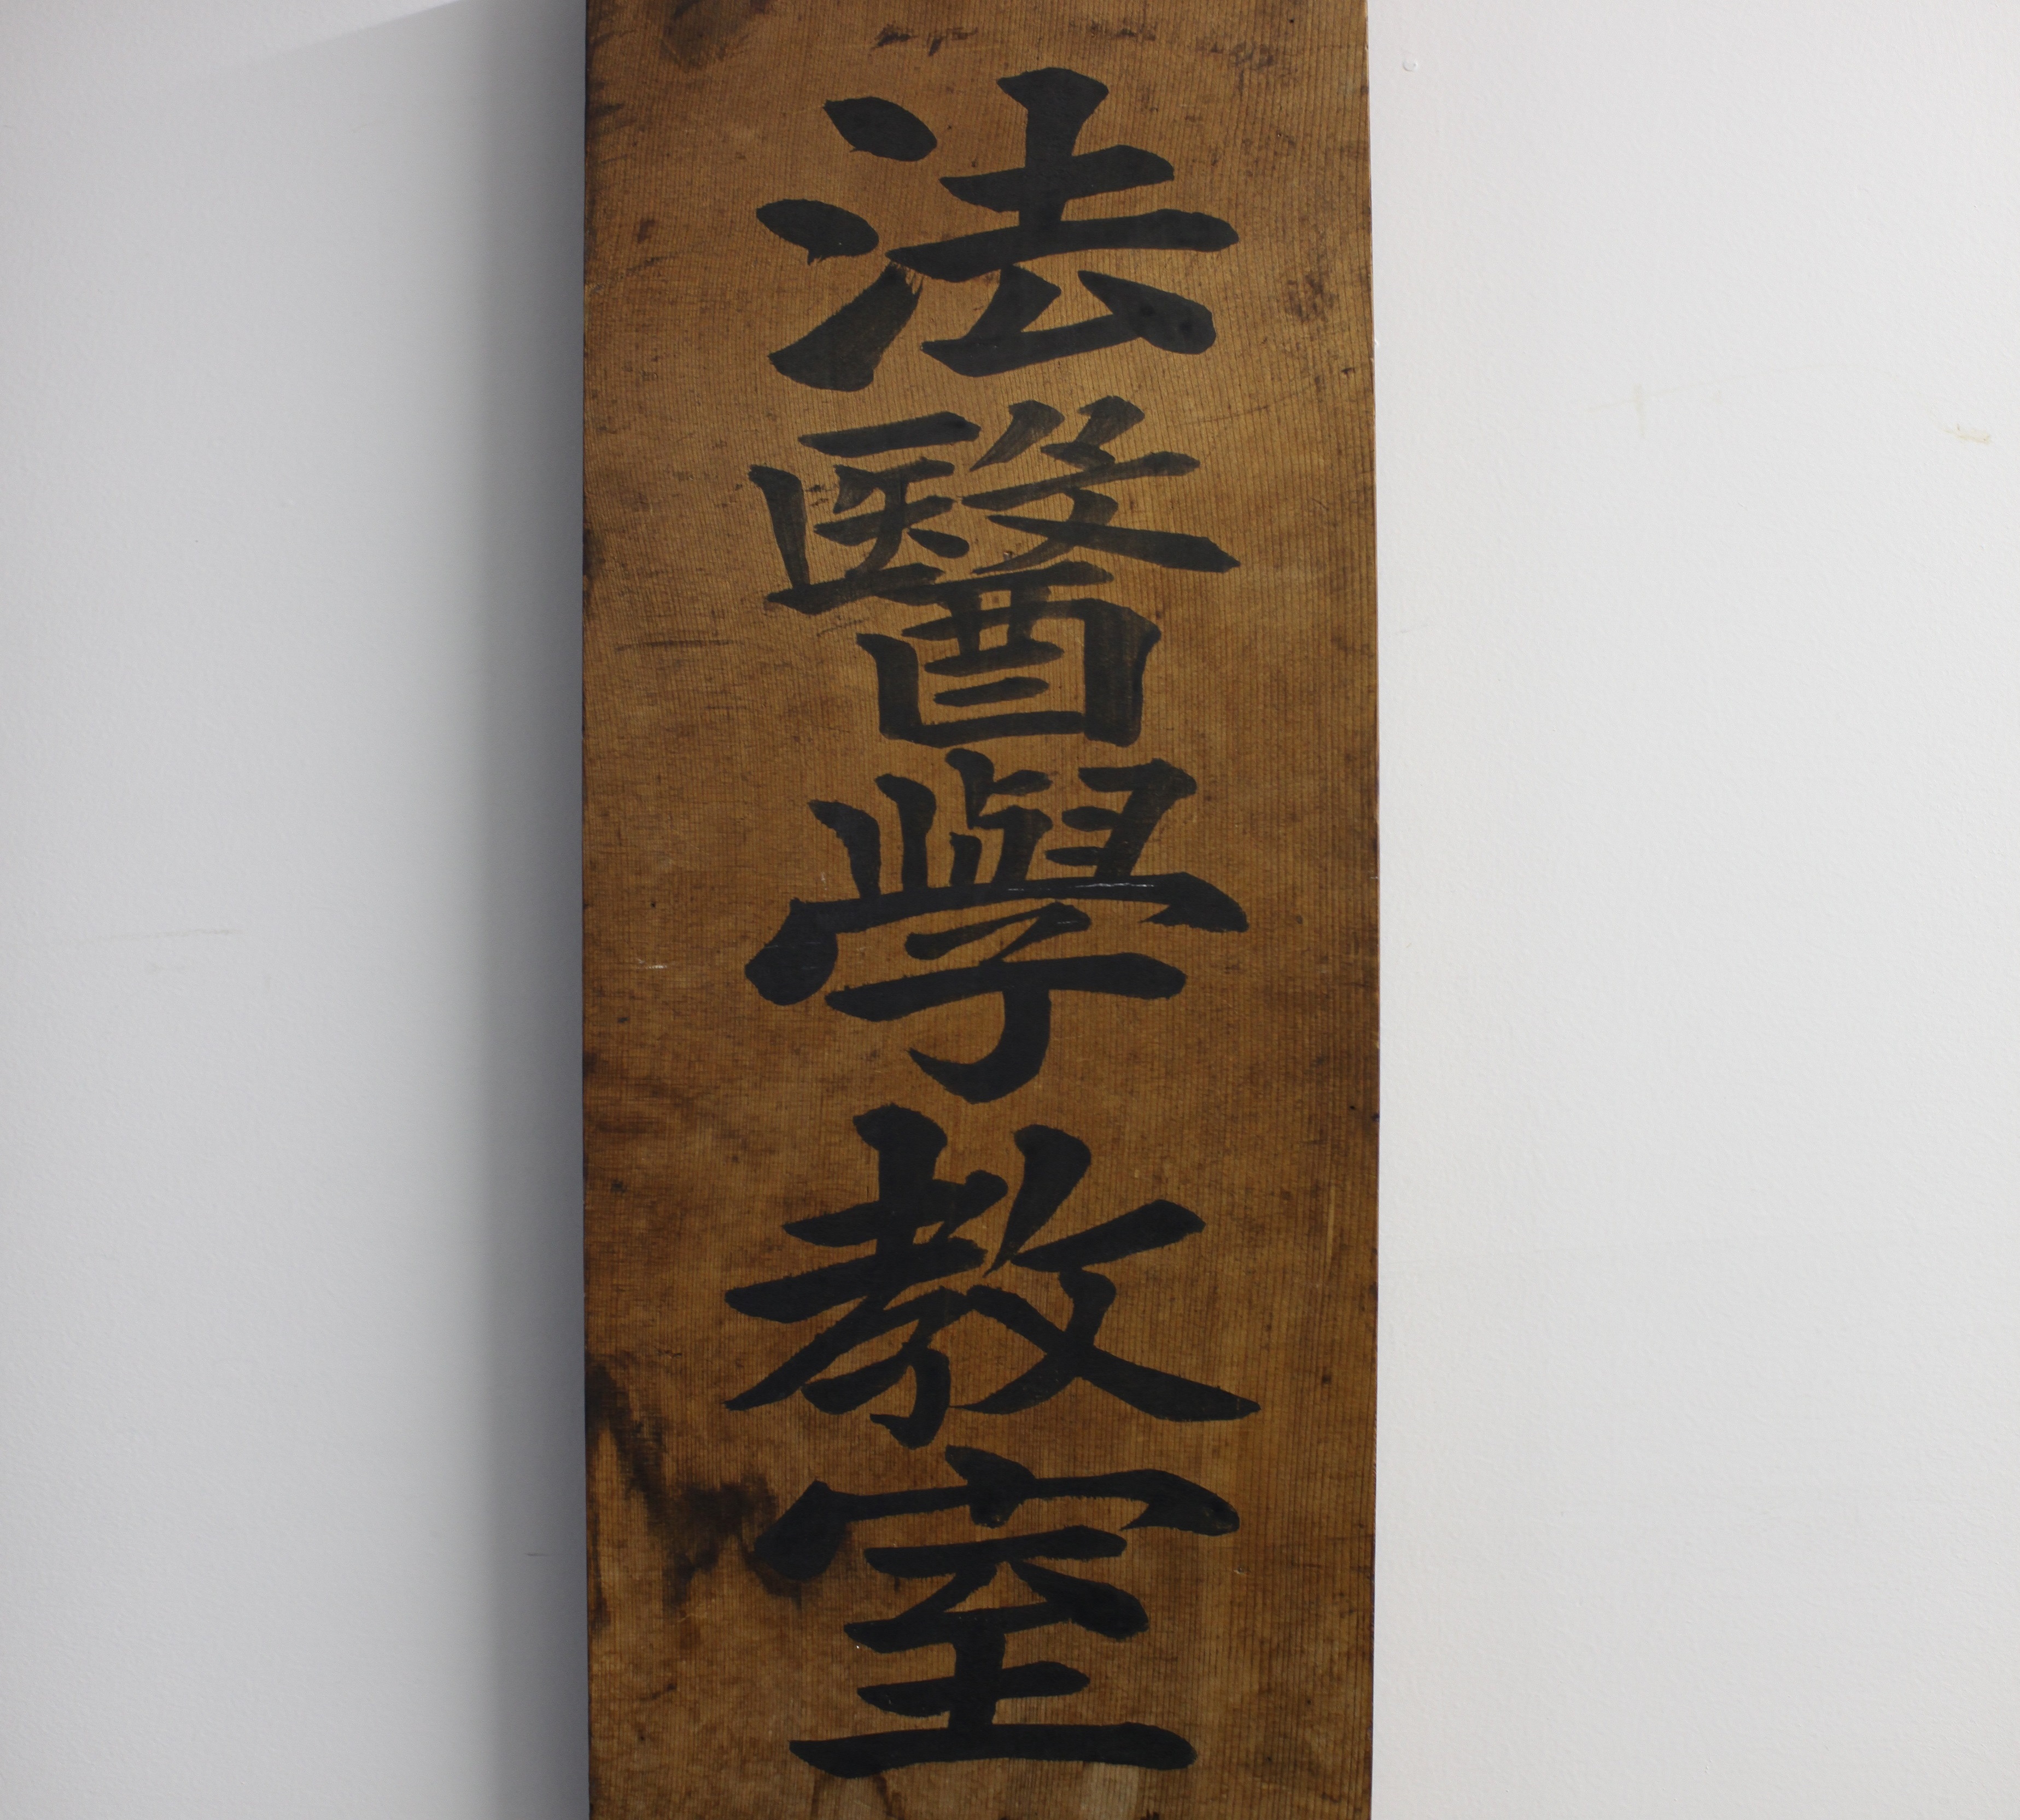 法醫學教室